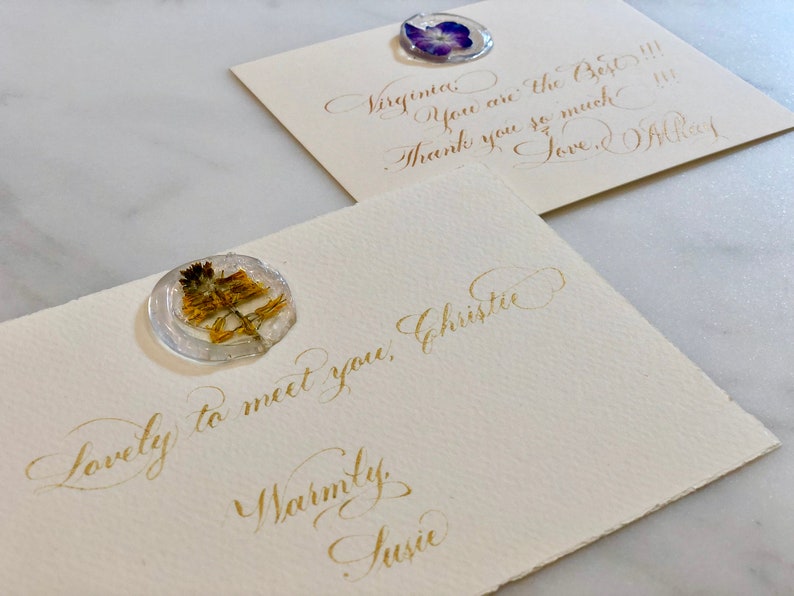 Virginia,
You are the Best!!!
Thank you so much !!!
Love,
Lovely to meet you, Christie
Warmly,
Susie